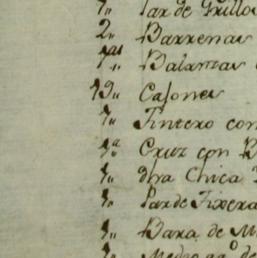 1,, Par de Grillos
2,, Barrenas
1as Balanzas
19,, Cajones
1,, Tintero con
1a Cruz con
1,, dha Chica
1,, Par de Tixera
1,, Bara de M
1,, de